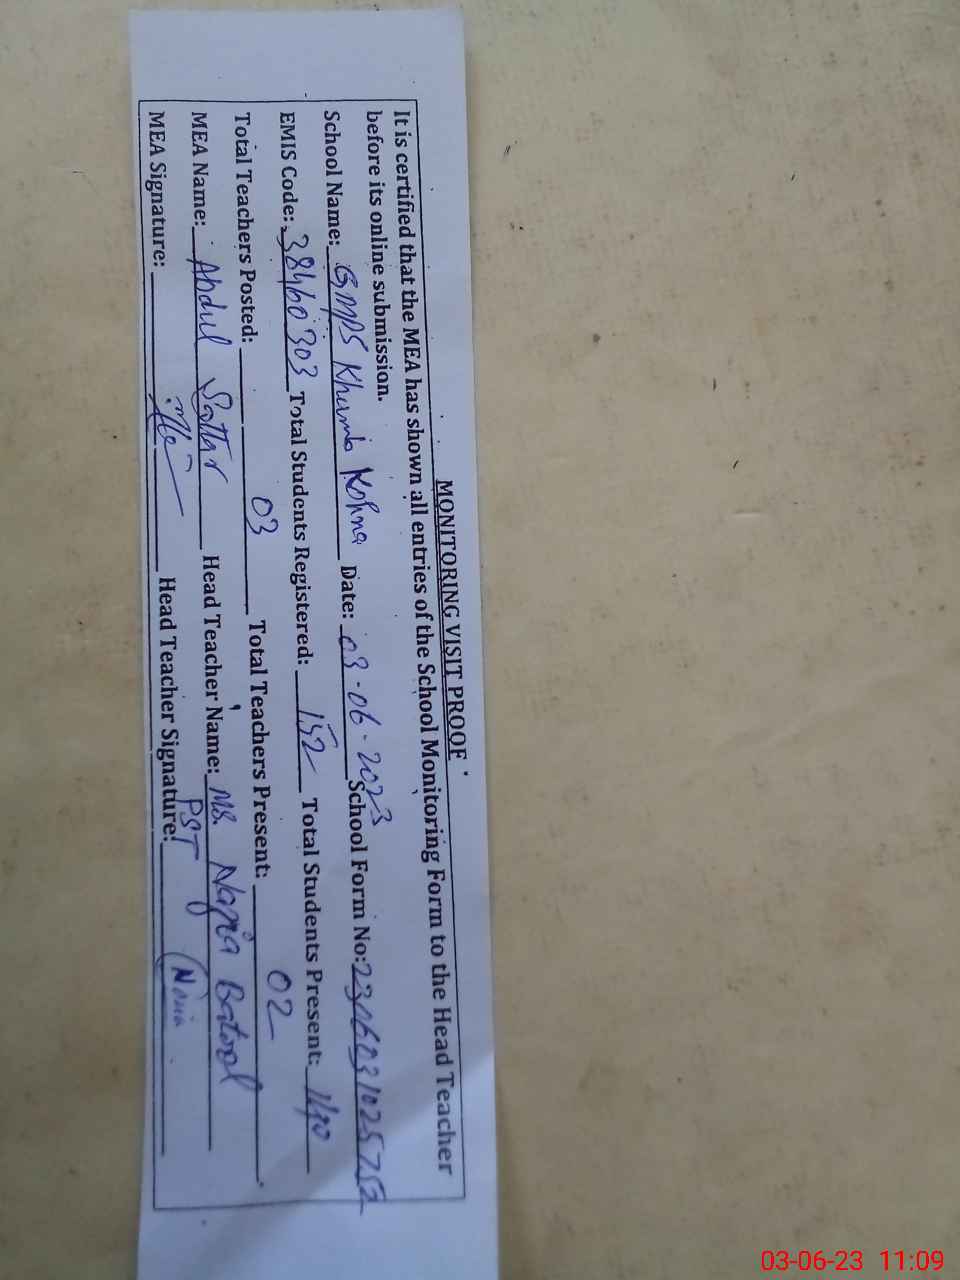 MONITORING VISIT PROOF
It is certified that the MEA has shown all entries of the School Monitoring Form to the Head Teacher
before its online submission.
School Name: GMPS Khumb Kohna Date: 03-06-2023 School Form No:
EMIS Code: 38460303 Total Students Registered: 152 Total Students Present: 140
Total Teachers Posted: 03 Total Teachers Present: 02
MEA Name: Abdul Sattar Head Teacher Name: Ms. Batool
PST
MEA Signature: Head Teacher Signature:
03-06-23 11:09